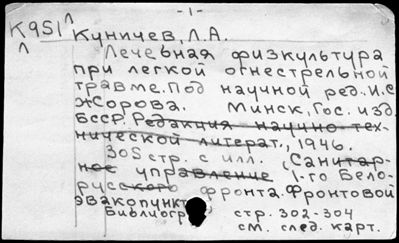 -1-
К951 Куничев, Л.А.
Лечебная физкультура
при легкой огнестрельной
травме. Под научной ред. И.С
Жорова. Минск, Гос. изд.
БССР. Редакция научно-тех-
нической литерат., 1946.
305 стр. с илл. (Санитар-
ное управление 1-го Бело-
русского фронта. Фронтовой
эвакопункт
Библиогр стр. 302-304
см. след. карт.